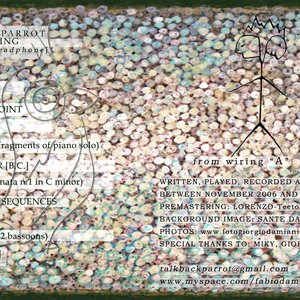 PARROT
ING
eadphone]
OINT
ragments of/piano solo)
R [B.C.]
nata n.1 in C minor)
SEQUENCES
2 bassoons)
from wiring "A"
WRITTEN, PLAYED, RECORDED A
BETWEEN NOVEMBER 2006 AND
PREMASTERING: LORENZO "Teeto
BACKGROUND IMAGE: SANTE DA
PHOTOS: www.fotogiorgiodamiani
SPECIAL THANKS TO: MIKY, GIOR
talkbackparrot@gmail.com
www.myspace.com/fabiodam